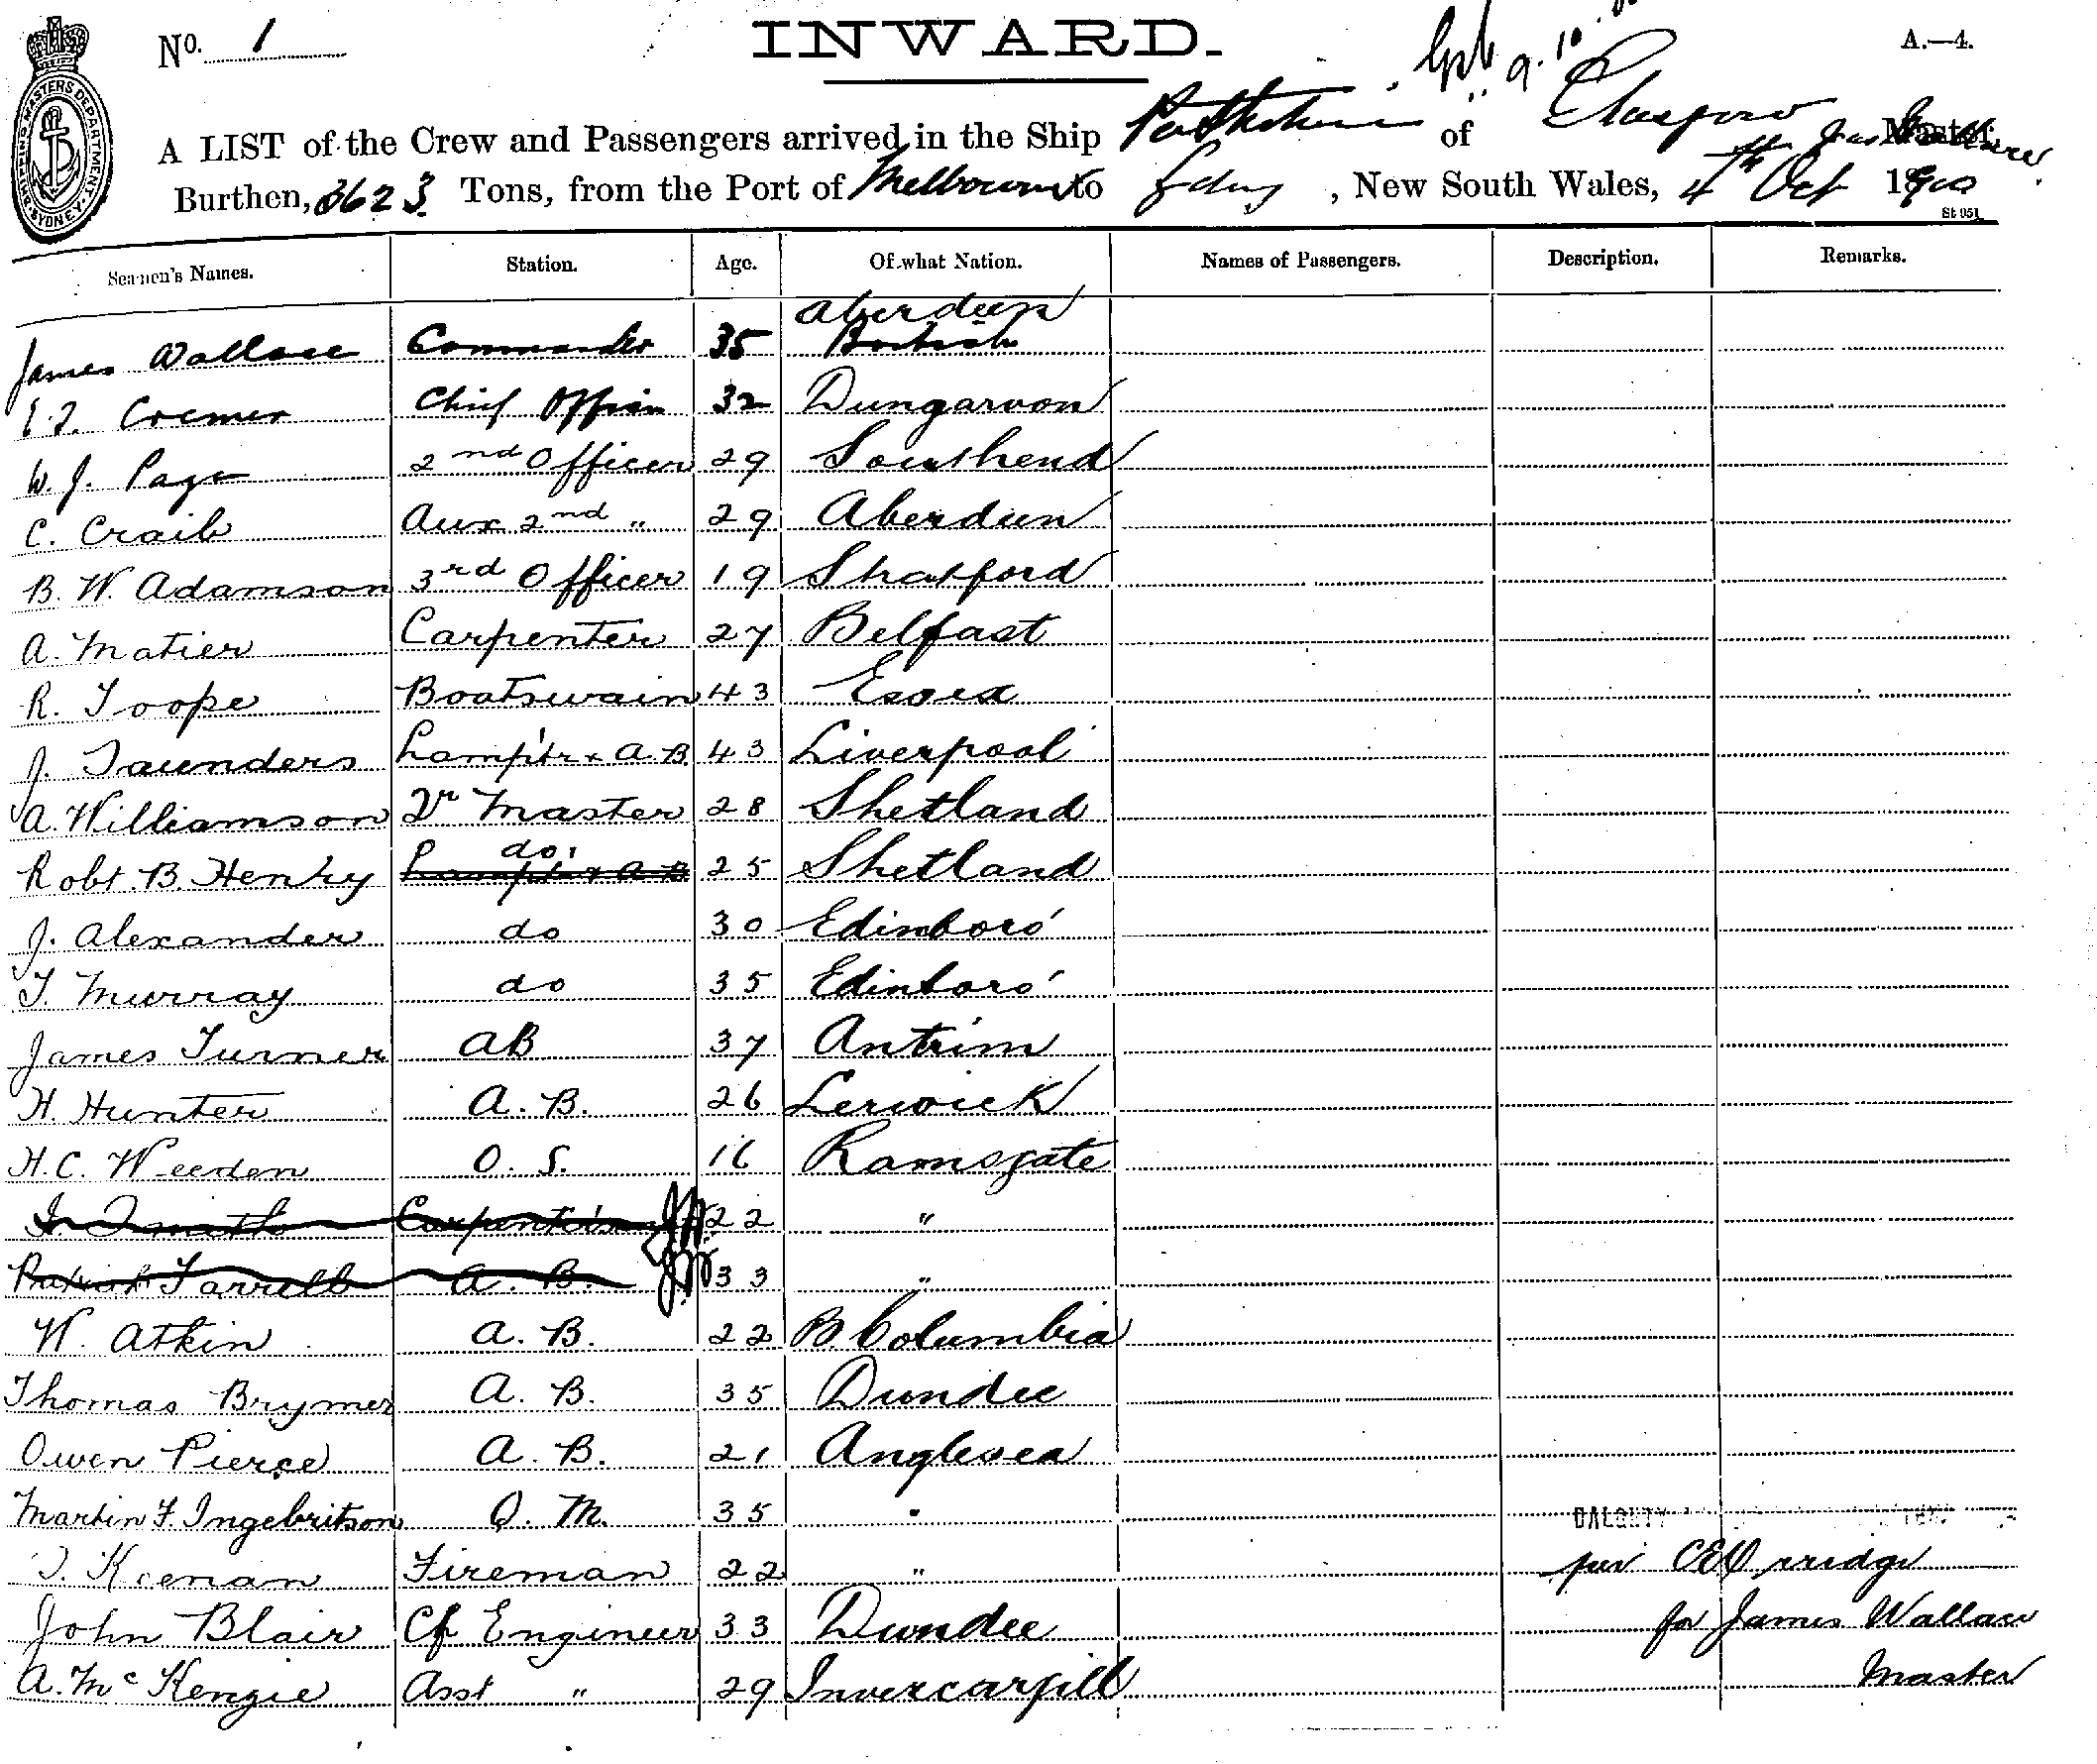 No. 1
INWARD.
A.—4.
SHIPPING MASTERS DEPARTMENT SYDNEY
9.10.
A LIST of the Crew and Passengers arrived in the Ship Perthshire of Glasgow Jas Wallace Master,
Burthen, 3623 Tons, from the Port of Melbourne to Sydney, New South Wales, 4th Oct 1900
St 951
Seamen's Names. Station. Age. Of what Nation. Names of Passengers. Description. Remarks.
Aberdeen
James Wallace Commander 35 British
E.J. Cremer Chief Officer 32 Dungarvon
W. J. Page 2nd Officer 29 Southend
C. Craib Aux 2nd " 29 Aberdeen
B. W. Adamson 3rd Officer 19 Stratford
A. Matier Carpenter 27 Belfast
R. Toope Boatswain 43 Essex
J. Saunders Lamptr & A.B. 43 Liverpool
A. Williamson Qr Master 28 Shetland
do.
Robt. B. Henry Lamptr & A B 25 Shetland
J. Alexander do 30 Edinboro'
T. Murray do 35 Edinboro'
James Turner AB 37 Antrim
H. Hunter A. B. 26 Lerwick
H.C. Weeden O. S. 16 Ramsgate
Smith Carpenter's J.W. 22 "
Patrick Farrell A. B. J.W. 33 "
W. Atkin A. B. 22 B. Columbia
Thomas Brymer A. B. 35 Dundee
Owen Pierce A. B. 21 Anglesea
Martin F. Ingebritson Q. M. 35 " DALGETY
Keenan Fireman 22 " per
John Blair Cf Engineer 33 Dundee for James Wallace
A. McKenzie Asst " 29 Invercargill Master